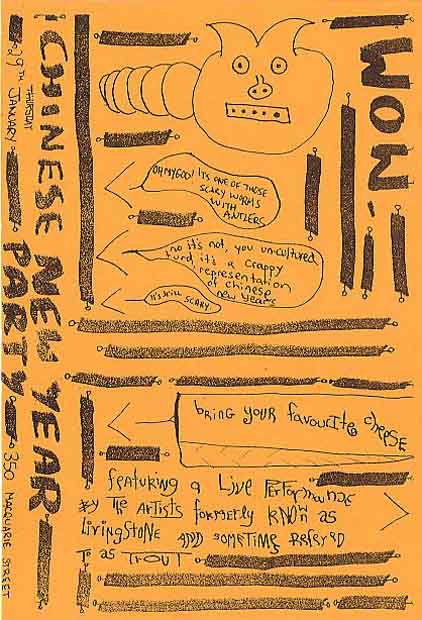 WOW
THURSDAY
29TH JANUARY
CHINESE NEW YEAR
PARTY
350 MACQUARIE STREET
OH MY GOD! ITS ONE OF THOSE
SCARY WORMS
WITH
ANTLERS
no it's not, you uncultured
turd, it's a crappy
representation
of chinese
new years
It's still SCARY.
bring your favourite cheese
featuring a Live Performance
by The Artists formerly known as
Livingstone and sometimes Refered
To as TROUT